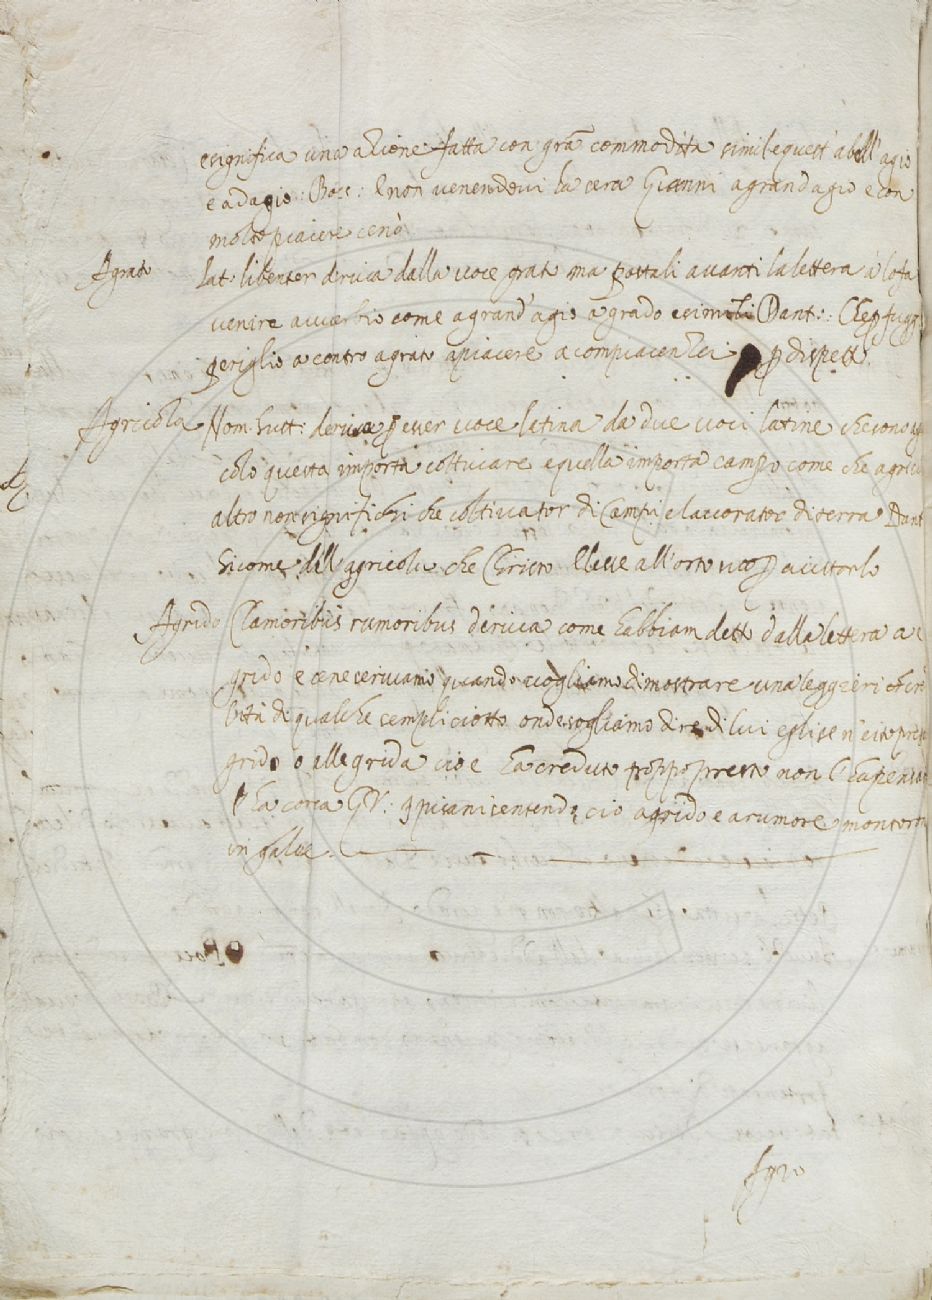 e significa una azione fatta con grā commodità simile quest' a bell' agio
e adagio: Bocc: e non venendovi la cera Gianni a grand agio e con
molto piacere cenò
Agrato lat: libenter deriva dalla voce grato ma postali avanti la lettera a lo fa
venire avverbio come a grand' agio a grado e simili Dant:: Che fugg
periglio a contro agrato a piacere a compiacenza dispett
Agricola Nom: sust: deriva esser voce latina da due voci latine che sono
colo questa importa coltivare e quella importa campo come che agric
altro non significhi che coltivator di Campi e lavorator di terra Dant
Sicome dell agricola che Christo Elesse all'orto suo aiutarlo
Agrido Clamoribus rumoribus deriva come habbiam dett dalla lettera a e
grido e cene serviamo quando vogliamo dimostrare una leggieri
lità di qualche sempliciotto onde sogliamo dire di lui egli se n' è ito pres
grido o alle grida cioè ha creduto troppo presto non l' ha pensa
la cosa GV: pisani sentend ciò a grido e a rumore montoro
in galee.
Bocc
Agro